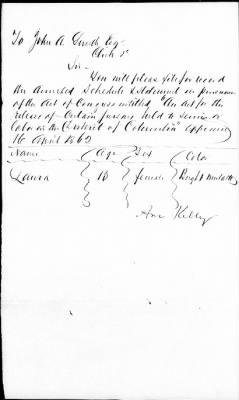 To John A. Smith Esq
Clerk &c
Sir
You will please file for record
the annexed Schedule & statement in pursuance
of the Act of Congress entitled "An act for the
release of Certain persons held to service or
labor in the District of Columbia" approved
16 April 1862
Name Age Sex Color
Laura 18 female Bright Mulatto
Ann Kelly